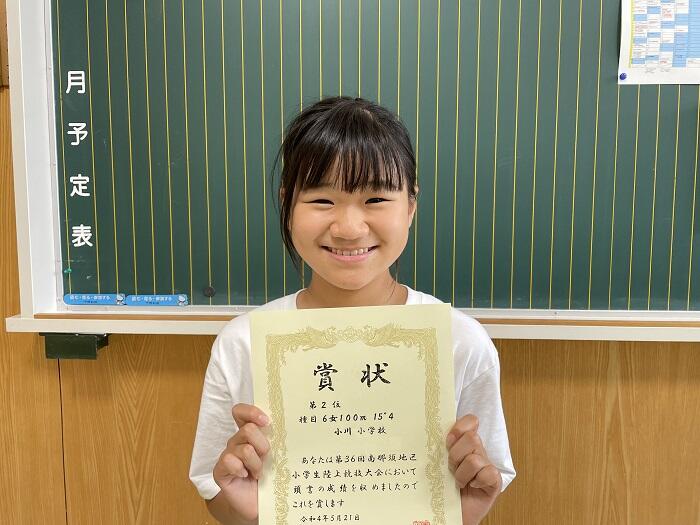 月予定表
賞状
第2位
種目 6女100m 15"4
小川 小学校
あなたは第36回南那須地区
小学生陸上競技大会において
頭書の成績を収めましたので
これを賞します
令和4年5月21日